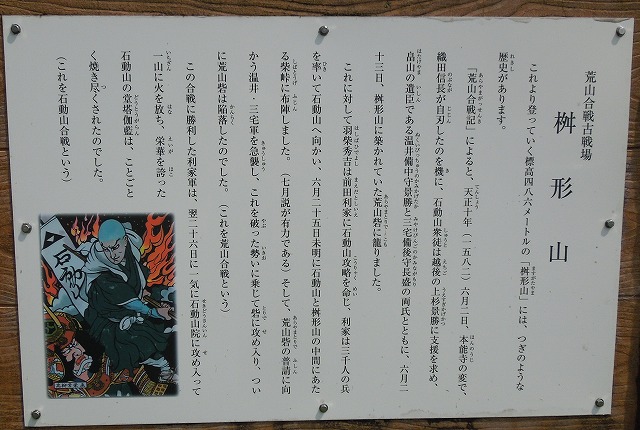 荒山合戦古戦場
桝形山
これより登っていく標高四八六メートルの「桝形山」には、つぎのような
歴史があります。
「荒山合戦記」によると、天正十年(一五八二)六月二日、本能寺の変で、
織田信長が自刃したのを機に、石動山衆徒は越後の上杉景勝に支援を求め、
畠山の遺臣である温井備中守景勝と三宅備後守長盛の両氏とともに、六月二
十三日、桝形山に築かれていた荒山砦に籠りました。
これに対して羽柴秀吉は前田利家に石動山攻略を命じ、利家は三千人の兵
を率いて石動山へ向かい、六月二十五日未明に石動山と桝形山の中間にあた
る柴峠に布陣しました。(七月説が有力である)そして、荒山砦の普請に向
かう温井、三宅軍を急襲し、これを破った勢いに乗じて砦に攻め入り、つい
に荒山砦は陥落したのでした。(これを荒山合戦という)
この合戦に勝利した利家軍は、翌二十六日に一気に石動山院に攻め入って
一山に火を放ち、栄華を誇った
石動山の堂塔伽藍は、ことごと
く焼き尽くされたのでした。
(これを石動山合戦という)
石動山